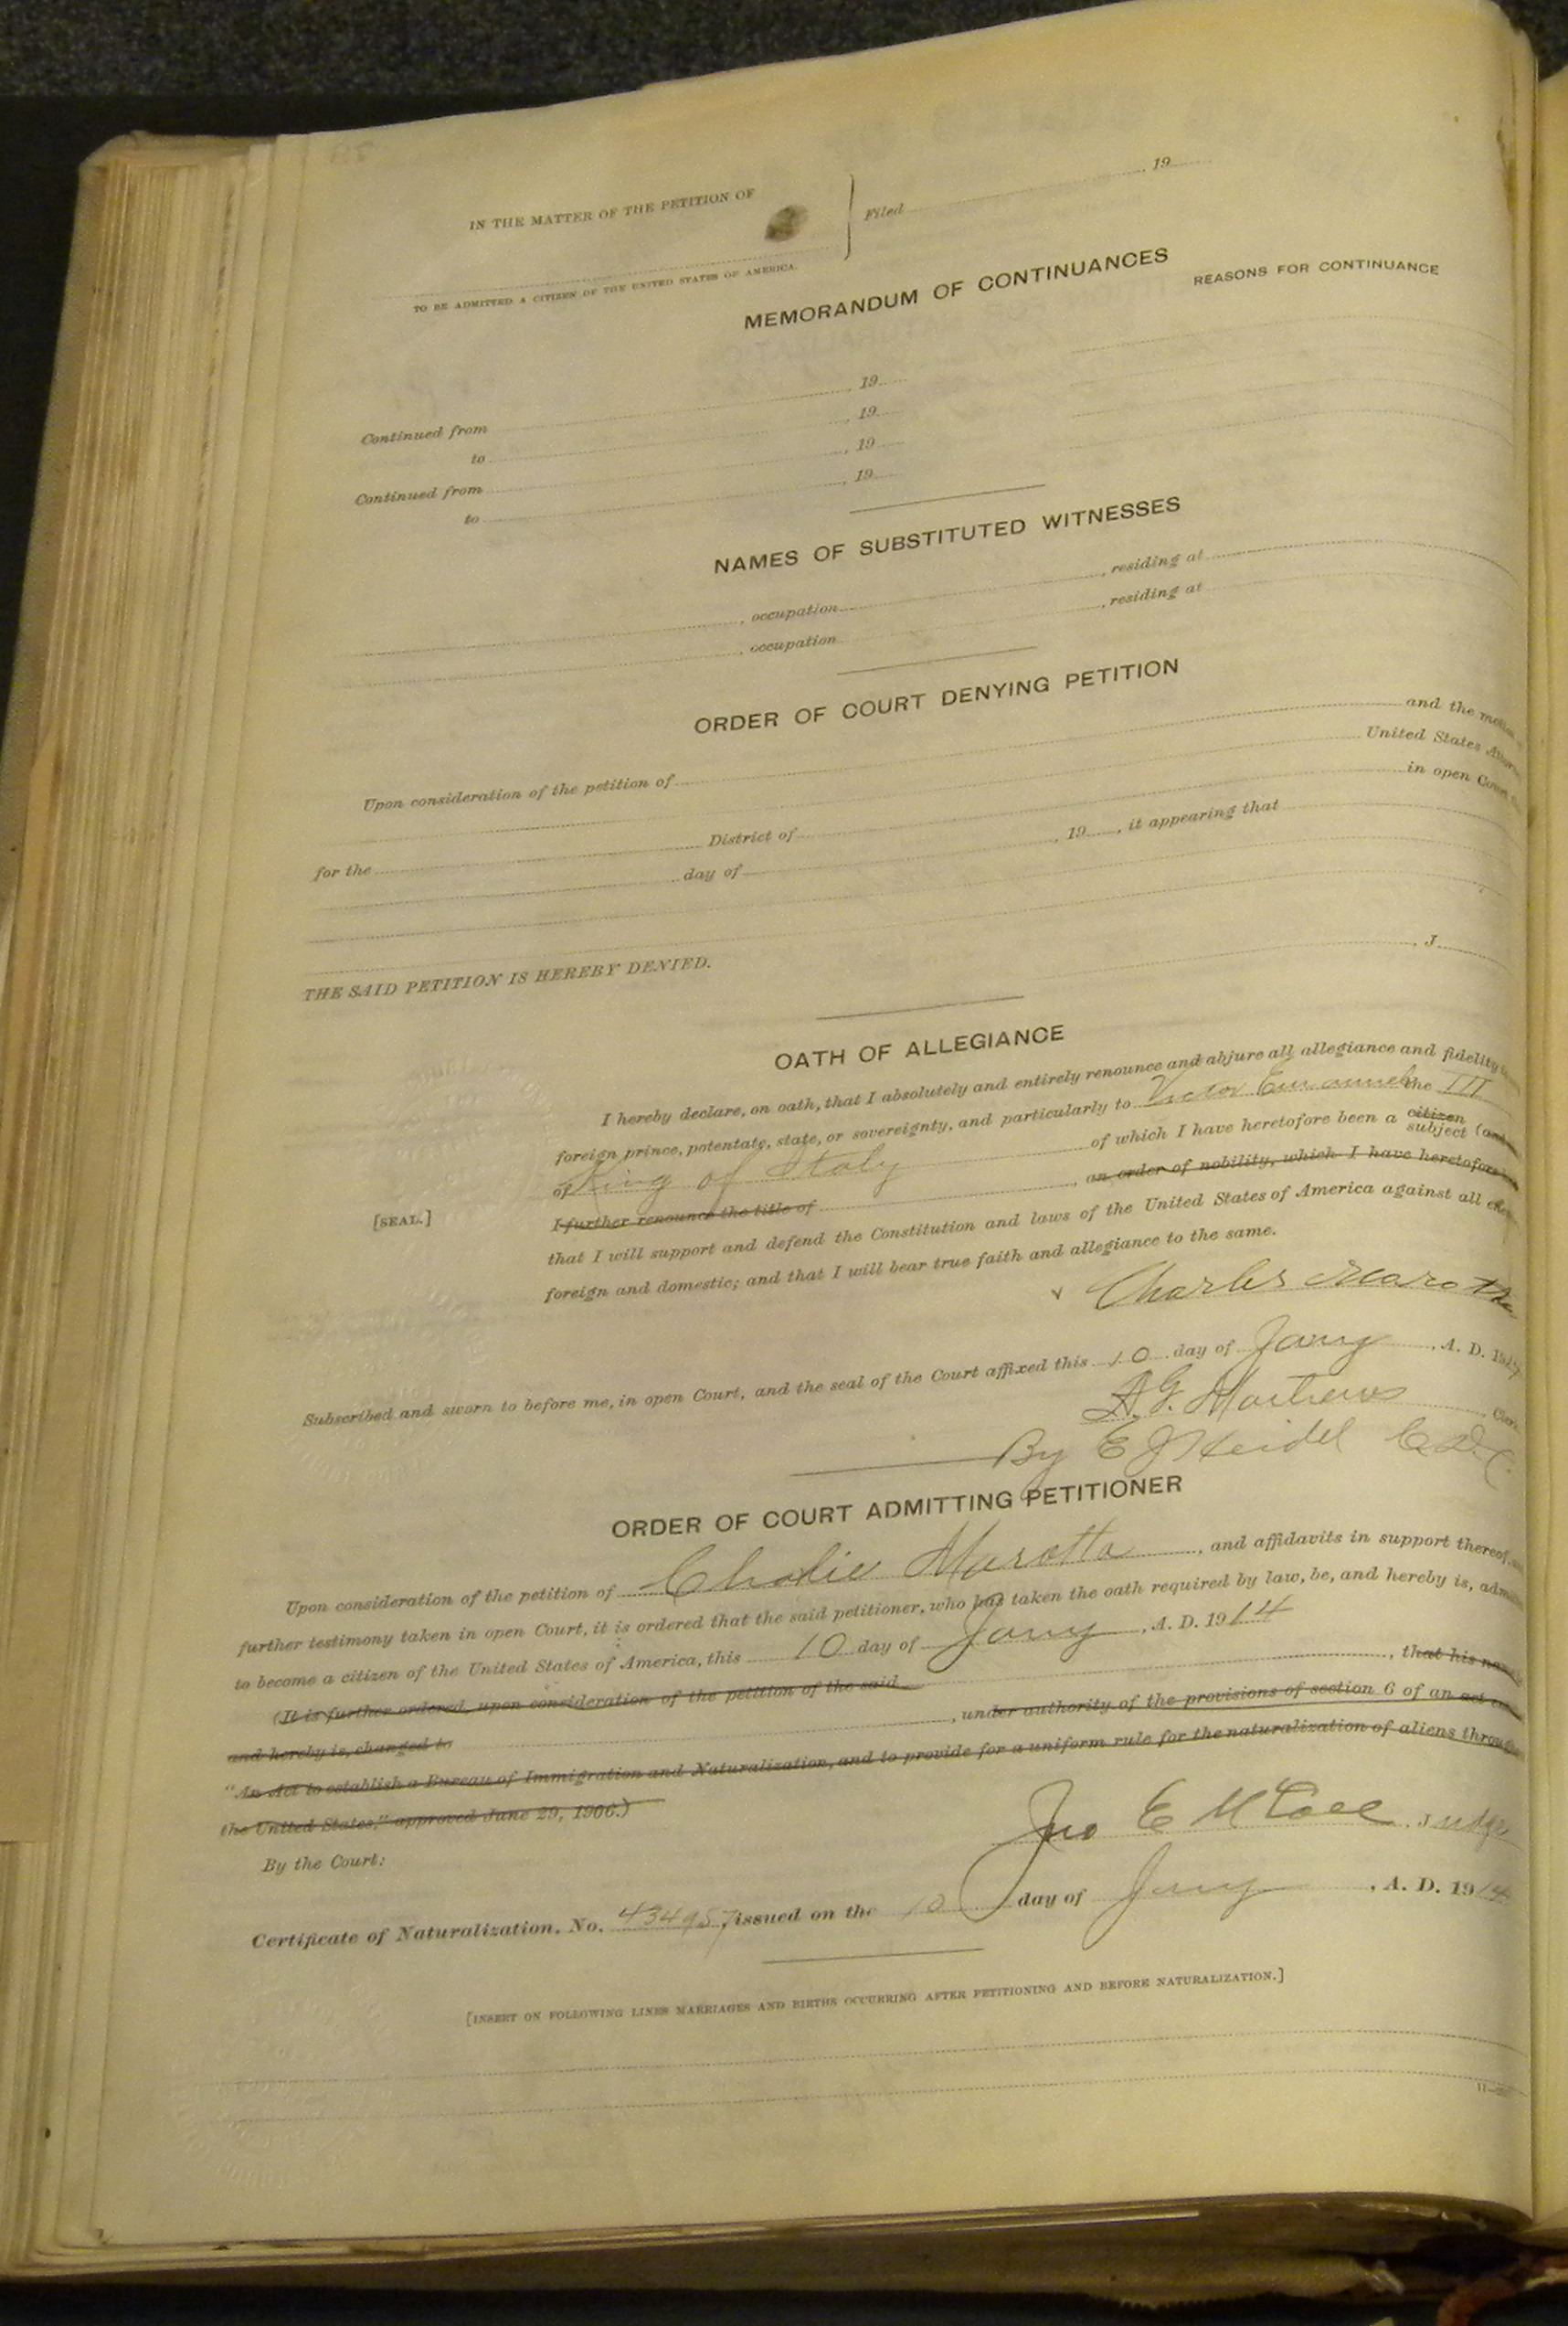 IN THE MATTER OF THE PETITION OF
Filed , 19
TO BE ADMITTED A CITIZEN OF THE UNITED STATES OF AMERICA.
MEMORANDUM OF CONTINUANCES
REASONS FOR CONTINUANCE
Continued from , 19
to , 19
Continued from , 19
to , 19
NAMES OF SUBSTITUTED WITNESSES
, occupation , residing at
, occupation , residing at
ORDER OF COURT DENYING PETITION
Upon consideration of the petition of and the
United States
for the District of in open
day of , 19 , it appearing that
THE SAID PETITION IS HEREBY DENIED.
, J
OATH OF ALLEGIANCE
I hereby declare, on oath, that I absolutely and entirely renounce and abjure all allegiance and fidelity
foreign prince, potentate, state, or sovereignty, and particularly to Victor Emanuel the III
of King of Italy of which I have heretofore been a citizen subject
I further renounce the title of , an order of nobility, which I have heretofore
that I will support and defend the Constitution and laws of the United States of America against all
foreign and domestic; and that I will bear true faith and allegiance to the same.
[SEAL.]
Charles Marotta
Subscribed and sworn to before me, in open Court, and the seal of the Court affixed this 10 day of Jany , A. D. 19
By E J Heidel
ORDER OF COURT ADMITTING PETITIONER
Upon consideration of the petition of Charlie Marotta , and affidavits in support thereof,
further testimony taken in open Court, it is ordered that the said petitioner, who has taken the oath required by law, be, and hereby is,
to become a citizen of the United States of America, this 10 day of Jany , A. D. 1914
(It is further ordered, upon consideration of the petition of the said , that his
and hereby is, changed to , under authority of the provisions of section 6 of an act
"An Act to establish a Bureau of Immigration and Naturalization, and to provide for a uniform rule for the naturalization of aliens
the United States," approved June 29, 1906.)
By the Court:
Jno E McCall Judge
Certificate of Naturalization, No. 434957, issued on the 10 day of Jany , A. D. 1914
[INSERT ON FOLLOWING LINES MARRIAGES AND BIRTHS OCCURRING AFTER PETITIONING AND BEFORE NATURALIZATION.]